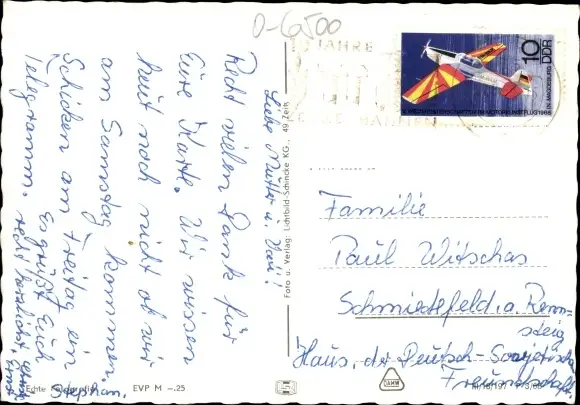 D-6500
JAHRE
10
DDR
IN MAGDEBURG
WELTMEISTERSCHAFTEN IM MOTORKUNSTFLUG 1968
Liebe Mutter u. Vati!
Recht vielen Dank für
Eure Karte. Wir wissen
heut noch nicht ob wir
am Samstag kommen.
Schicken am Freitag ein
Telegramm.
Es grüßt Euch
recht herzlichst
Stephan.
Foto u. Verlag: Lichtbild-Schincke KG., 49 Zeitz
Familie
Paul Witschas
Schmiedefeld a. Renn-
steig
Haus der Deutsch-Sowjetische
Freundschaft.
Echte Fotografie
EVP M -.25
DAMW